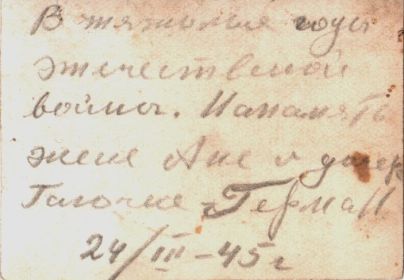 В тяжолые годы
отечественой
войны. Напамять
жене Ане и дочер
Галочке Герман
24/III-45г